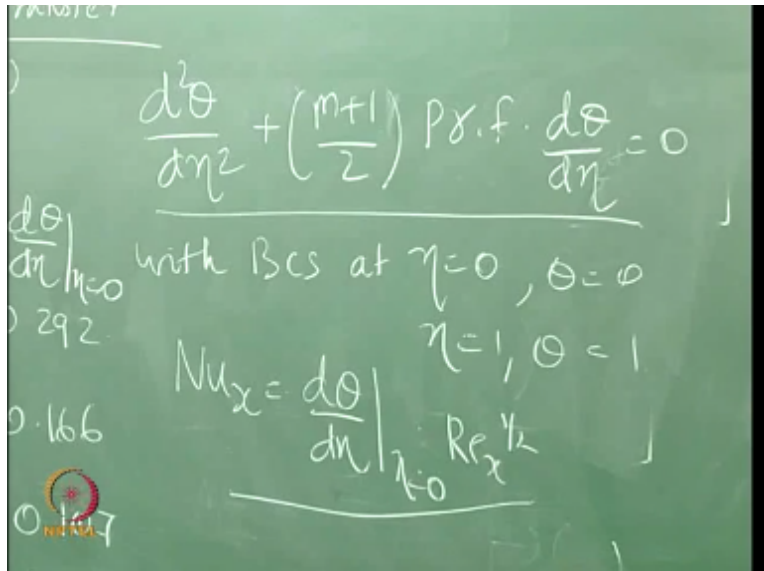 )
d²θ/dη² + (m+1/2) Pr.f. dθ/dη = 0
dθ/dη|η=0
with Bcs at η=0, θ=0
292
η=1, θ=1
Nuₓ = dθ/dη|η=0 Reₓ^1/2
0.166
NPTEL